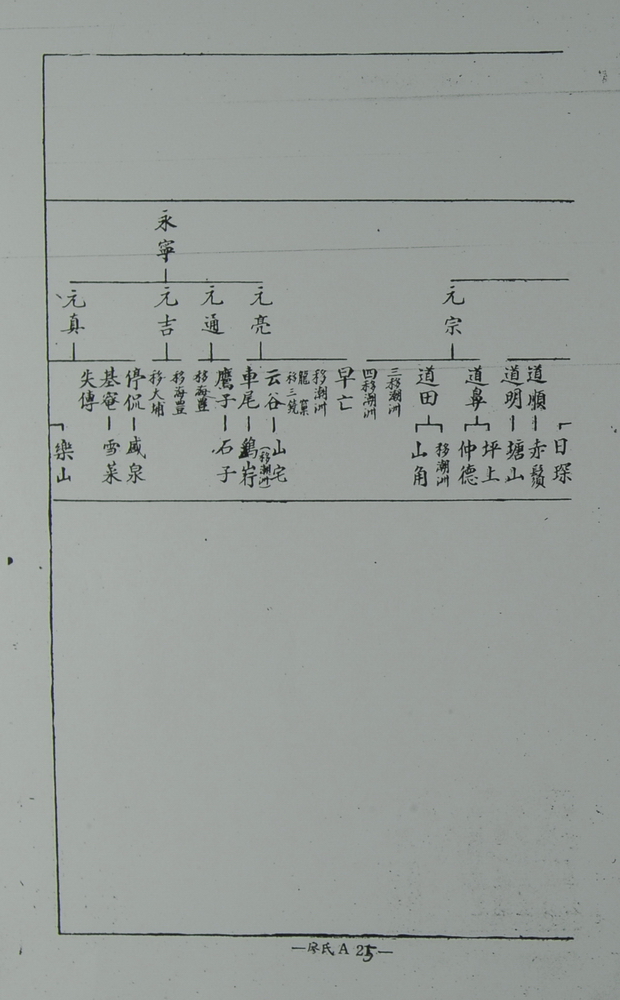 永寧
元宗
元亮
元通
元吉
元真
道順
道明
道鼻
道田
三移潮洲
四移潮洲
早亡
移潮洲
龍窠
移三饒
云谷
車尾
鷹子
移海豐
移海豐
移大埔
停侃
基菴
失傳
日琛
赤鬚
塘山
坪上
仲德
移潮洲
山角
山宅
(移潮洲)
石子
盛泉
雪菜
樂山
—廖氏 A 25—